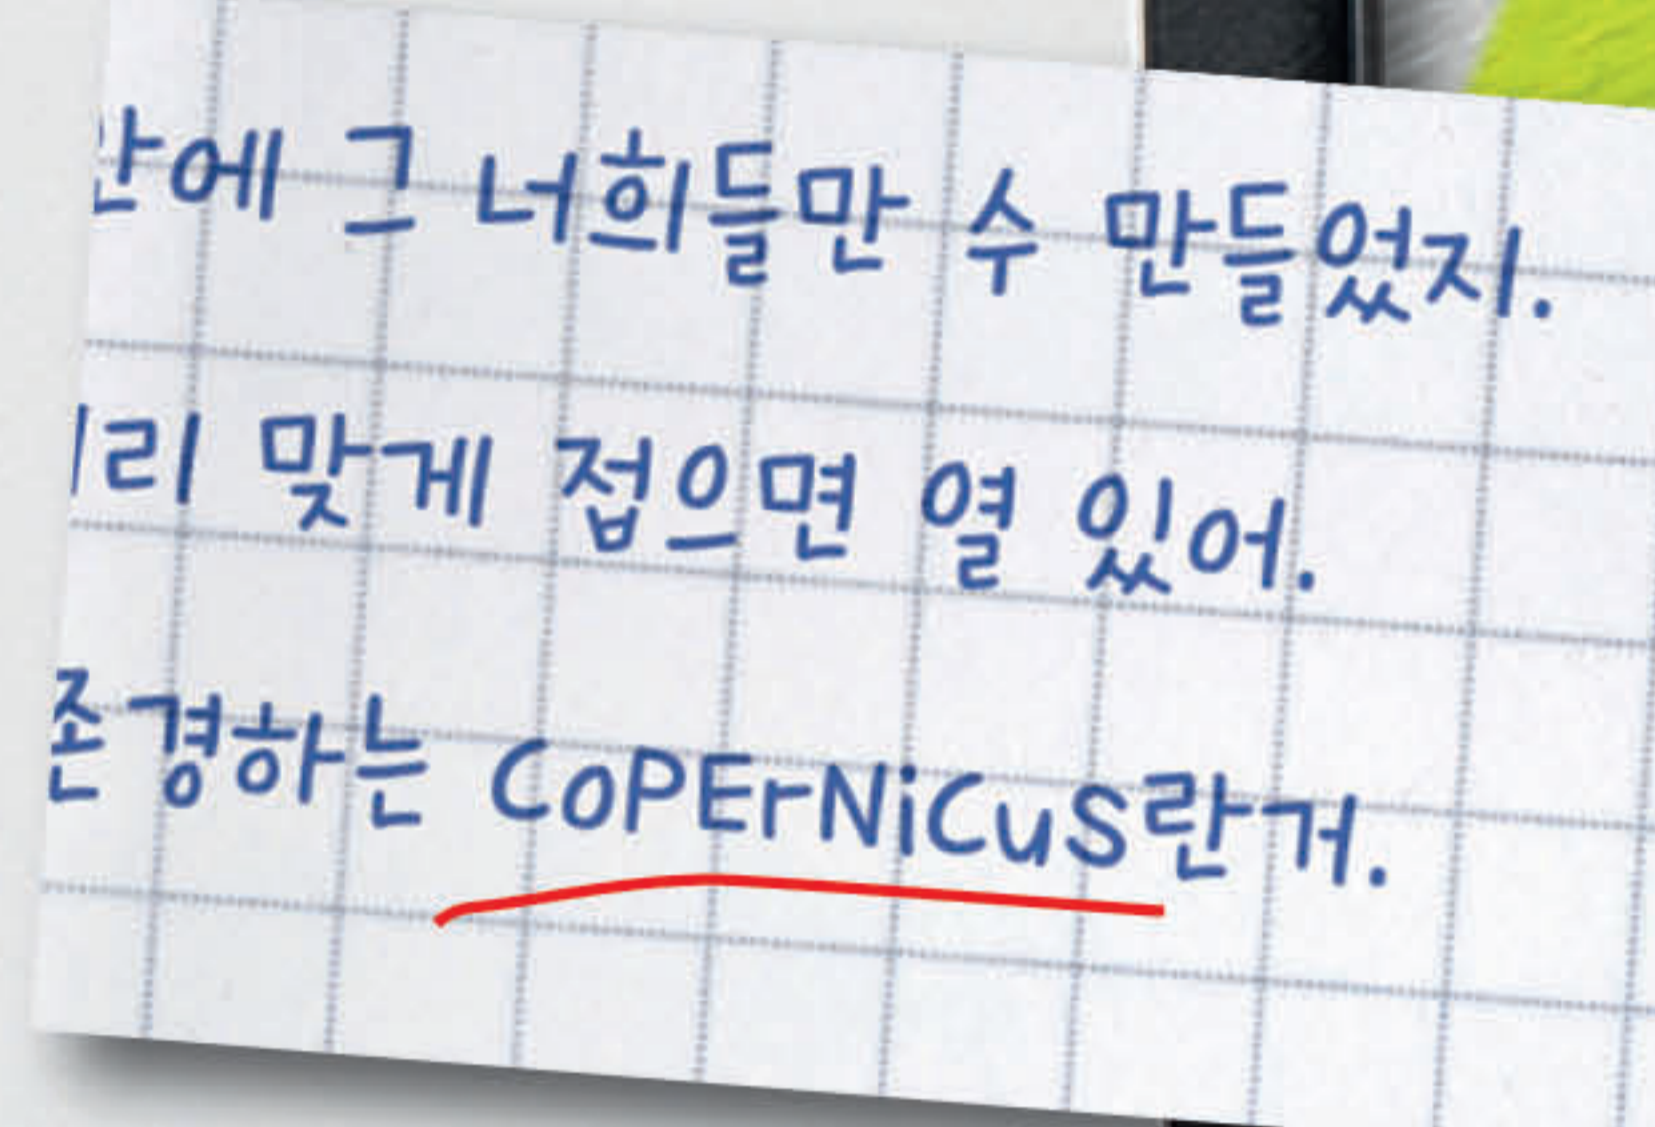 에 그 너희들만 수 만들었지.
리 맞게 접으면 열 있어.
존경하는 CoPErNiCuS란거.